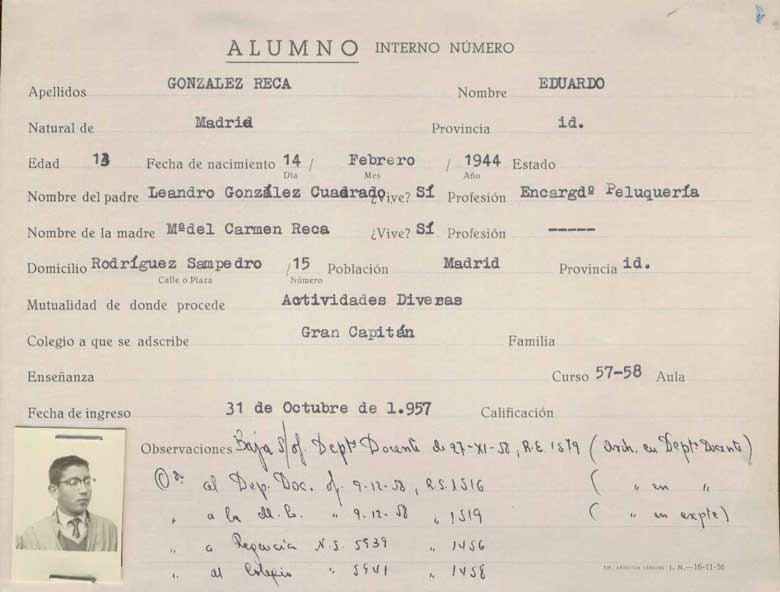 ALUMNO INTERNO NÚMERO
Apellidos GONZALEZ RECA Nombre EDUARDO
Natural de Madrid Provincia id.
Edad 13 Fecha de nacimiento 14 / Febrero / 1944 Estado
Día Mes Año
Nombre del padre Leandro González Cuadrado ¿Vive? Sí Profesión Encargdº Peluquería
Nombre de la madre Mªdel Carmen Reca ¿Vive? Sí Profesión -----
Domicilio Rodríguez Sampedro /15 Población Madrid Provincia id.
Calle o Plaza Número
Mutualidad de donde procede Actividades Diversas
Colegio a que se adscribe Gran Capitán Familia
Enseñanza Curso 57-58 Aula
Fecha de ingreso 31 de Octubre de 1.957 Calificación
Observaciones Baja s/of. Deptº Docente de 27-XI-58, R.E. 1579 (Arch. en Deptº Docente)
al Dep. Doc. of. 9-12-58, R.S. 1516 ( " en "
" a la " 9-12-58 " 1519 ( " en expte)
" a Regencia N.S. 5939 " 1456
" al Colegio " 5941 " 1458
J. N.—16-11-56